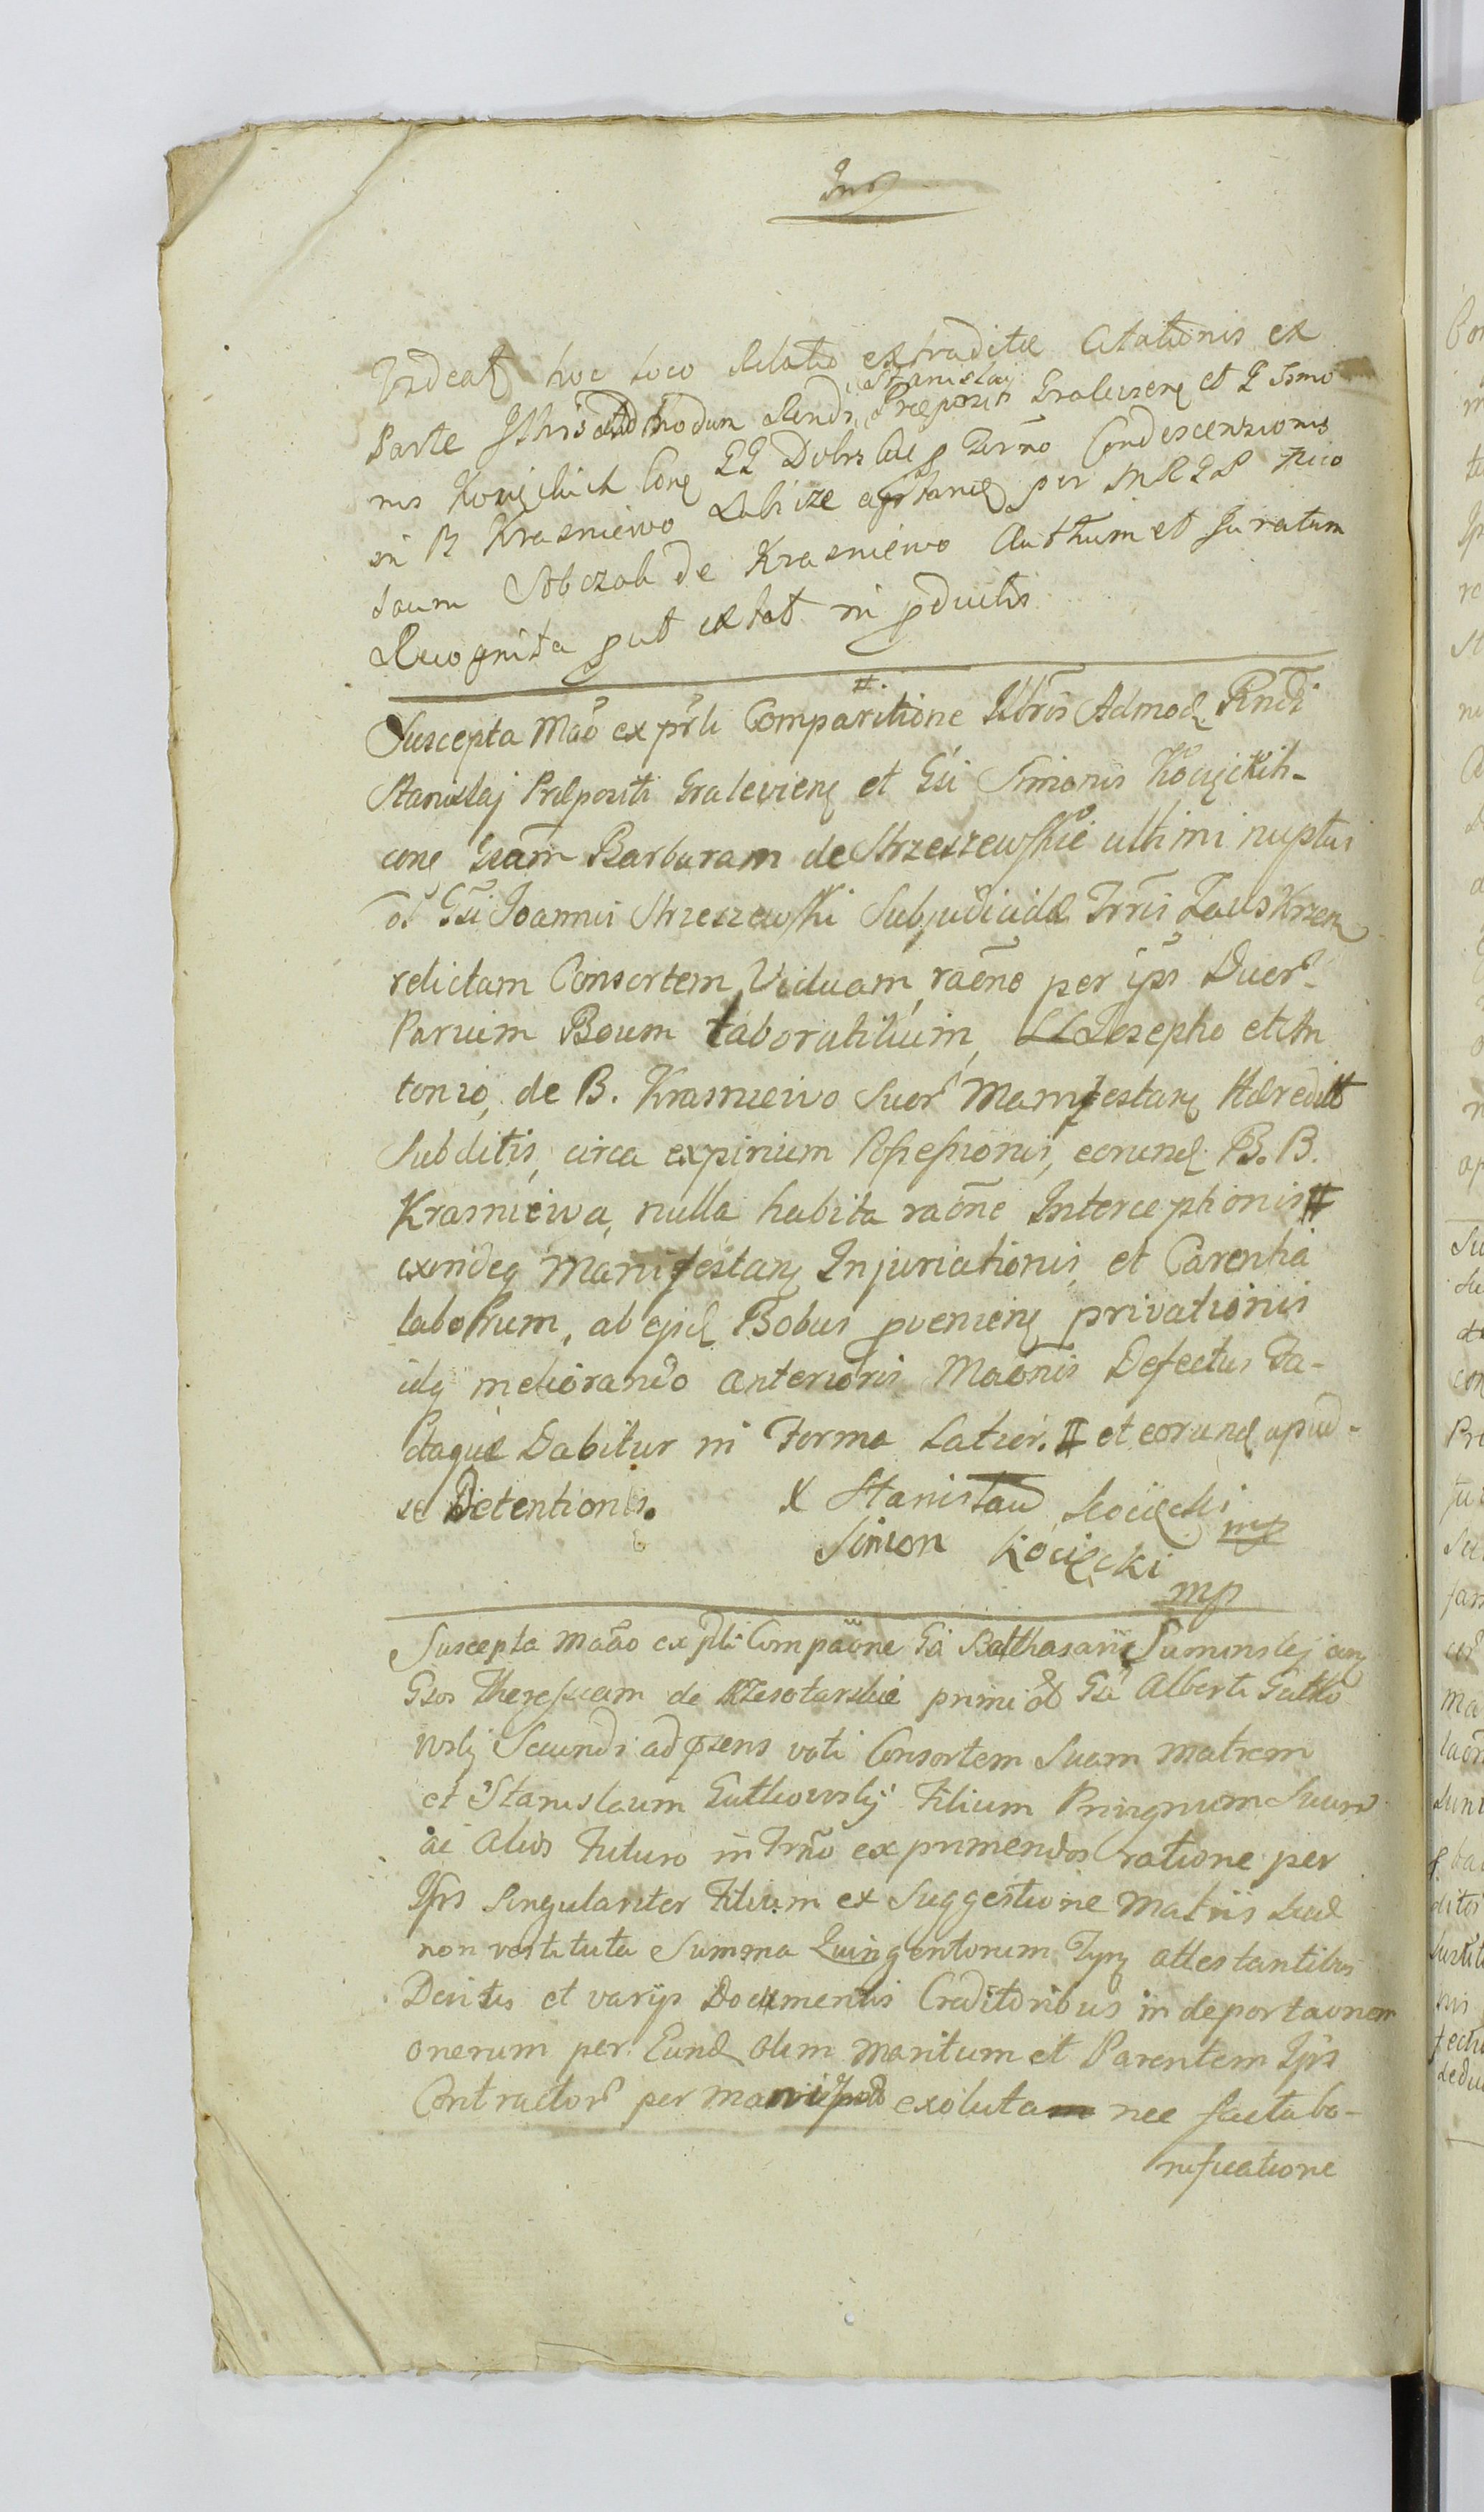 Indeat hoc loco Relatio extraditæ Citationis ex
Parte Illris Admodum Rendi Stanislaj Præpositi Gralewieną et G Simo
nis Kocięckich conę GG Dobrskie p Terñno Condescensionis
in B Krasniewo Labisze per M R G P Nico
laum Sobczak de Krasniewo Authum et Juratum
Recognita put extat in pductis
#.
Suscepta Mão ex prli Comparitione Illris Admodę Rndi
Stanislaj Præpositi Gralevieną et Gsi Simonis Kocięckich-
conę Gsam Barbaram de Strzeszewskie ultimi nuptus
ol Gsi Joannis Strzeszewski Subjudicidæ Trris Zaws Krzenę
relictam Consortem Viduam, raõne per ips Duor
Parium Boum laboratilium, Josepho et An
tonio, de B. Krasniewo Suor Manifestanę Hæredit
Subditis, circa expirium Possessionis, eorundę B. B.
Krasniewa, nulla habita raõne Interceptionis #
exindeq Manifestanę Injuriationis, et Carentia
laborum, ab ejsdę Bobus pvenienę privationis
idq meliorando anterioris Maõnis Defectus Fa-
ctaque Dabitur in Forma Latior. # et eorundę apud-
se Detentionis. X Stanisław Kocięcki mp
Simon Kocięcki
mp
Suscepta maão ex prli Compaõne Gsi Balthasaris Suminskj conę
Gsos Theressiam de Rzesotarskie primi ol Gsi Alberti Gutko
wskj Secundi ad psens voti Consortem Suam matrem
et Stanislaum Gutkowskij Filium Privignum Suum
ac alios Futuro in Trño exprimendos ratione per
Ips Singulariter Filium ex Suggestione Matris Suæ
non restituta Summa Quingentorum Tynę attestantibus
Decisis et varijs Documentis Creditoribus in deportaonem
onerum per Eundę olim Maritum et Parentem Ips
Contractor per exoluta nec facta bo-
nificatione